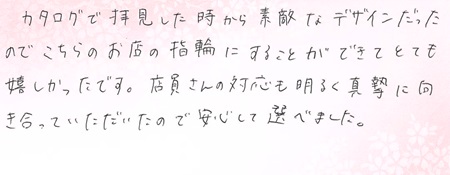 カタログで拝見した時から素敵なデザインだった
のでこちらのお店の指輪にすることができてとても
嬉しかったです。店員さんの対応も明るく真摯に向
き合っていただいたので安心して選べました。